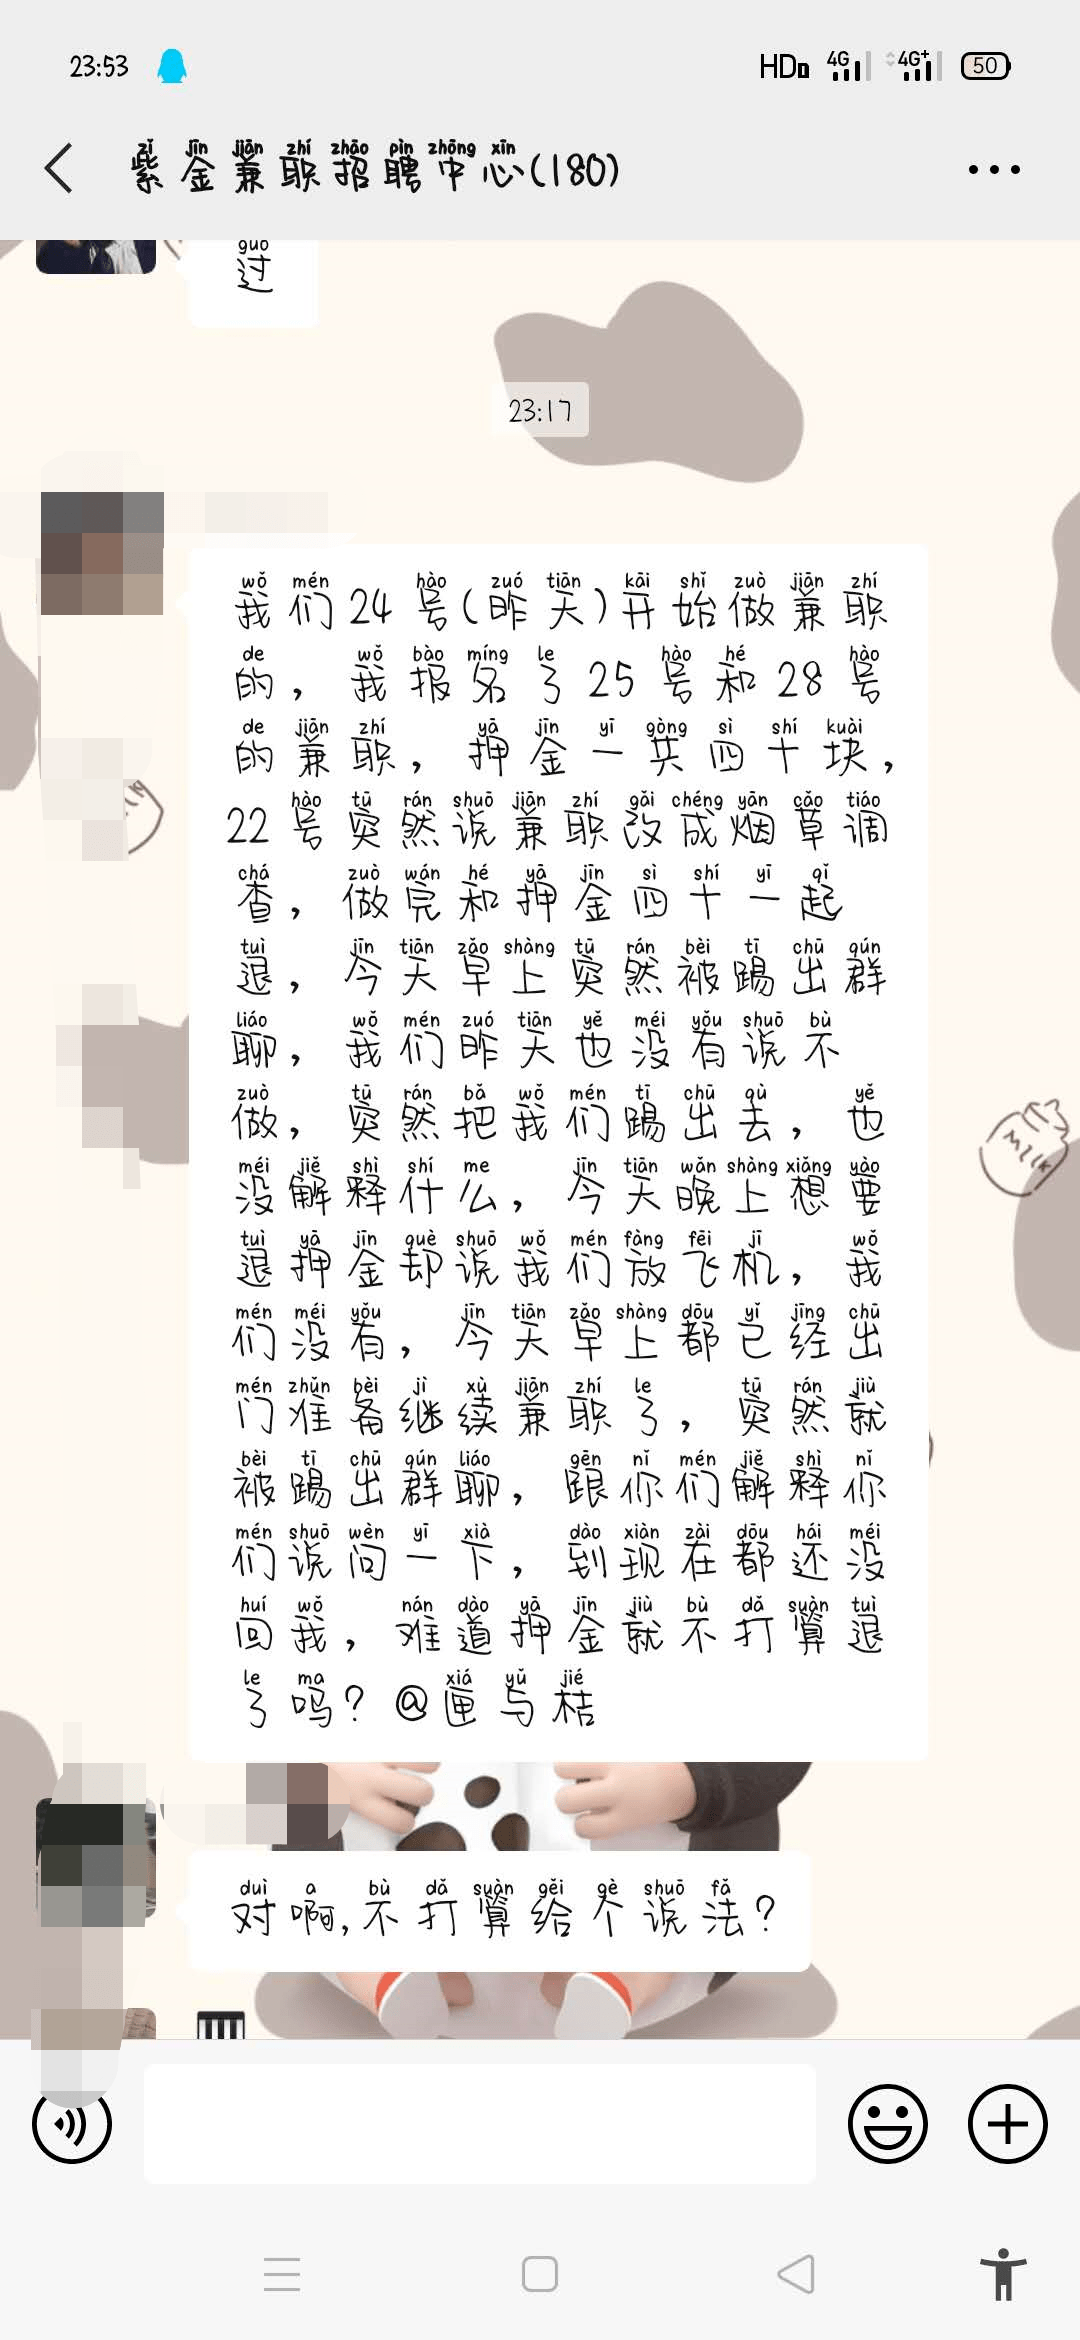 23:53
HD 4G 4G+ 50
紫金兼职招聘中心(180)
过
23:17
我们24号(昨天)开始做兼职
的，我报名了25号和28号
的兼职，押金一共四十块，
22号突然说兼职改成烟草调
查，做完和押金四十一起
退，今天早上突然被踢出群
聊，我们昨天也没有说不
做，突然把我们踢出去，也
没解释什么，今天晚上想要
退押金却说我们放飞机，我
们没有，今天早上都已经出
门准备继续兼职了，突然就
被踢出群聊，跟你们解释你
们说问一下，到现在都还没
回我，难道押金就不打算退
了吗？@匣与桔
对啊,不打算给个说法？